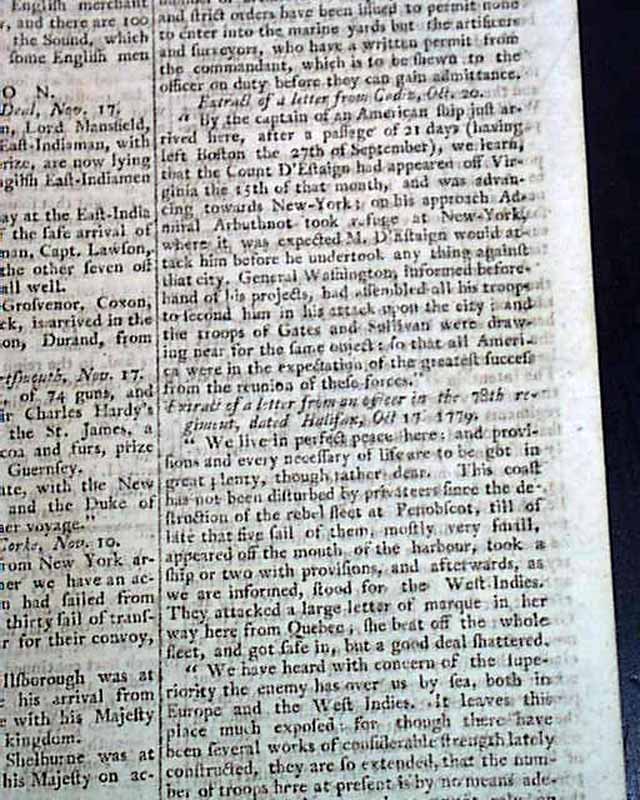 English merchant
, and there are 100
the Sound, which
some English men
O N.
Deal, Nov. 17.
n, Lord Mansfield,
East-Indiaman, with
rize, are now lying
nglish East-Indiamen
ay at the East-India
f the safe arrival of
man, Capt. Lawson,
the other seven off
all well.
Grosvenor, Coxon,
ck, is arrived in the
on, Durand, from
rtsmouth, Nov. 17.
, of 74 guns, and
ir Charles Hardy's
the St. James, a
coa and furs, prize
Guernsey.
ate, with the New
and the Duke of
her voyage."
Corke, Nov. 10.
rom New York ar-
her we have an ac-
n had sailed from
thirty sail of tranſ-
r for their convoy,
llsborough was at
e his arrival from
e with his Majeſty
kingdom.
Shelburne was at
his Majeſty on ac-
and ſtrict orders have been iſſued to permit none
to enter into the marine yards but the artificers
and ſurveyors, who have a written permit from
the commandant, which is to be ſhewn to the
officer on duty before they can gain admittance.
Extract of a letter from Cadiz, Oct. 20.
" By the captain of an American ſhip juſt ar-
rived here, after a paſſage of 21 days (having
left Boſton the 27th of September), we learn,
that the Count D'Eſtaign had appeared off Vir-
ginia the 15th of that month, and was advan-
cing towards New-York; on his approach Ad-
miral Arbuthnot took refuge at New-York,
where it was expected M. D'Eſtaign would at-
tack him before he undertook any thing againſt
that city. General Waſhington, informed before-
hand of his projects, had aſſembled all his troops
to ſecond him in his attack upon the city; and
the troops of Gates and Sullivan were draw-
ing near for the ſame object: ſo that all Ameri-
ca were in the expectation of the greateſt ſucceſs
from the reunion of theſe forces."
Extract of a letter from an officer in the 78th re-
giment, dated Halifax, Oct 17 1779.
" We live in perfect peace here; and provi-
ſions and every neceſſary of life are to be got in
great plenty, though rather dear. This coaſt
has not been diſturbed by privateers ſince the de-
ſtruction of the rebel fleet at Penobſcot, till of
late that five ſail of them, moſtly very ſmall,
appeared off the mouth of the harbour, took a
ſhip or two with proviſions, and afterwards, as
we are informed, ſtood for the Weſt-Indies.
They attacked a large letter of marque in her
way here from Quebec; ſhe beat off the whole
fleet, and got ſafe in, but a good deal ſhattered.
" We have heard with concern of the ſupe-
riority the enemy has over us by ſea, both in
Europe and the Weſt Indies. It leaves this
place much expoſed; for though there have
been ſeveral works of conſiderable ſtrength lately
conſtructed, they are ſo extended, that the num-
ber of troops here at preſent is by no means ade-